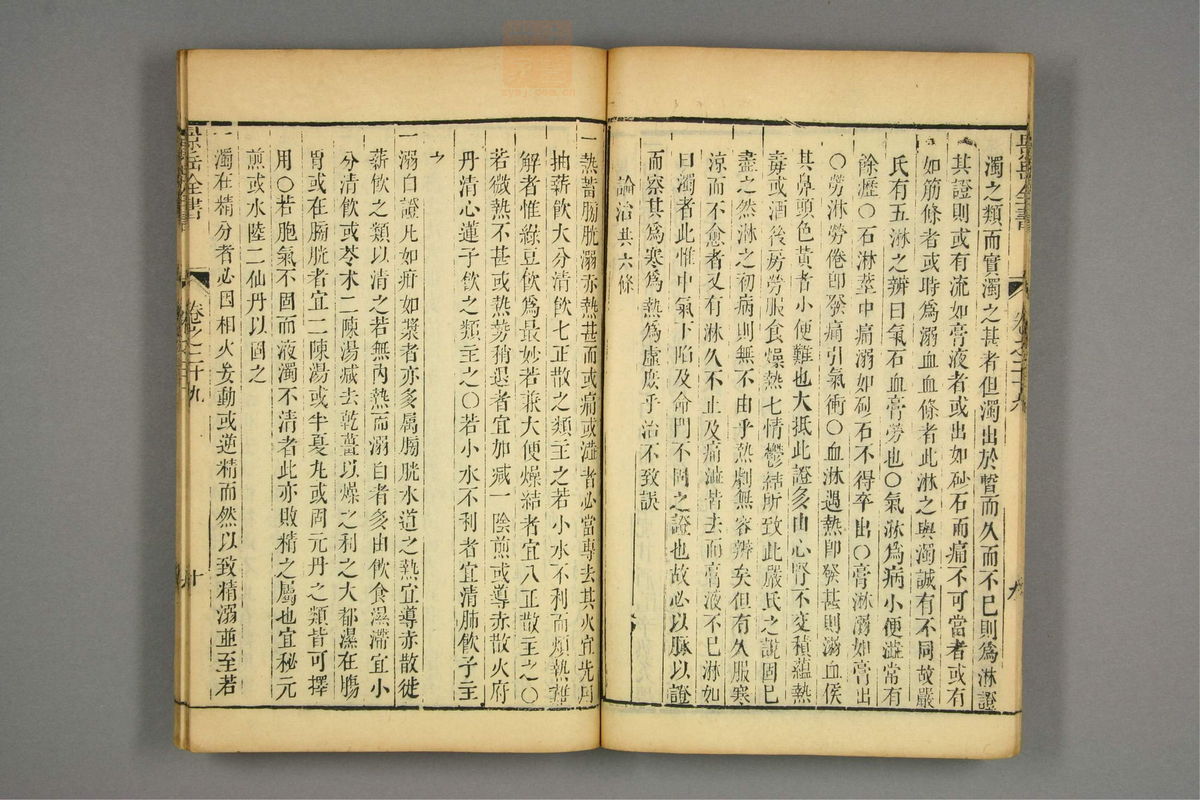 濁之類而實濁之甚者但濁出於暫而久而不已則為淋證
其證則或有流如膏液者或出如砂石而痛不可當者或有
如筋條者或時為溺血血條者此淋之與濁誠有不同故嚴
氏有五淋之辨曰氣石血膏勞也○氣淋為病小便澁常有
餘瀝○石淋莖中痛溺如砂石不得卒出○膏淋溺如膏出
○勞淋勞倦卽發痛引氣衝○血淋遇熱卽發甚則溺血候
其鼻頭色黃者小便難也大抵此證多由心腎不交積蘊熱
毒或酒後房勞服食燥熱七情鬱結所致此嚴氏之說固已
盡之然淋之初病則無不由乎熱劇無容辨矣但有久服寒
涼而不愈者又有淋久不止及痛澁皆去而膏液不已淋如
白濁者此惟中氣下陷及命門不固之證也故必以脉以證
而察其為寒為熱為虛庶乎治不致誤
論治共六條
一熱蓄膀胱溺赤熱甚而或痛或澁者必當專去其火宜先用
抽薪飲大分清飲七正散之類主之若小水不利而煩熱難
解者惟綠豆飲為最妙若兼大便燥結者宜八正散主之○
若微熱不甚或熱勢稍退者宜加減一陰煎或導赤散火府
丹清心蓮子飲之類主之○若小水不利者宜清肺飲子主
之
一溺白證凡如疳如漿者亦多屬膀胱水道之熱宜導赤散徙
薪飲之類以清之若無內熱而溺白者多由飲食濕滯宜小
分清飲或苓术二陳湯減去乾薑以燥之利之大都濕在腸
胃或在膀胱者宜二陳湯或半夏丸或固元丹之類皆可擇
用○若胞氣不固而液濁不清者此亦敗精之屬也宜秘元
煎或水陸二仙丹以固之
一濁在精分者必因相火妄動或逆精而然以致精溺並至若
景岳全書
卷之二十九
十